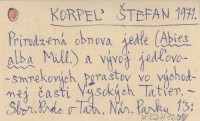 KORPEĽ ŠTEFAN 1971.
Prirodzená obnova jedle (Abies
alba Mill.) a vývoj jedľovo-
smrekových porastov vo východ-
nej časti Vysokých Tatier.-
Sbor. Prác o Tatr. Nár. Parku 13: